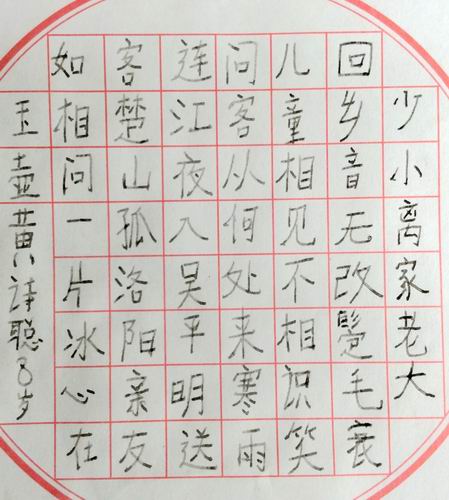 少小离家老大
回乡音无改鬓毛衰
儿童相见不相识笑
问客从何处来寒雨
连江夜入吴平明送
客楚山孤洛阳亲友
如相问一片冰心在
玉壶黄诗聪8岁